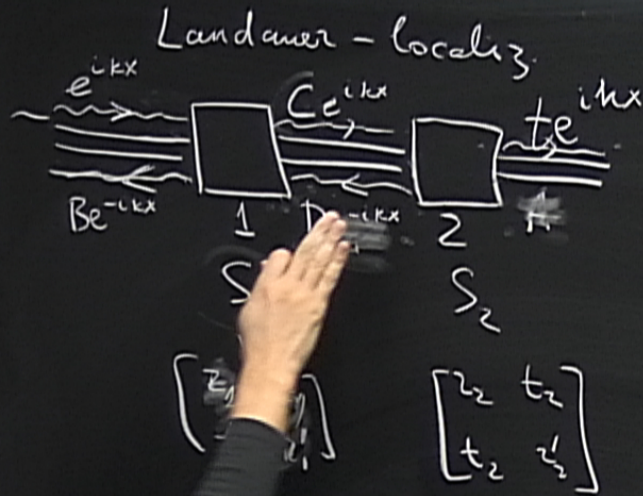 Landauer - localiz.
e^{ikx} Ce^{ikx} te^{ikx}
Be^{-ikx} 1 D e^{-ikx} 2
S S_2
[r_2 t_2
t_2 r'_2]